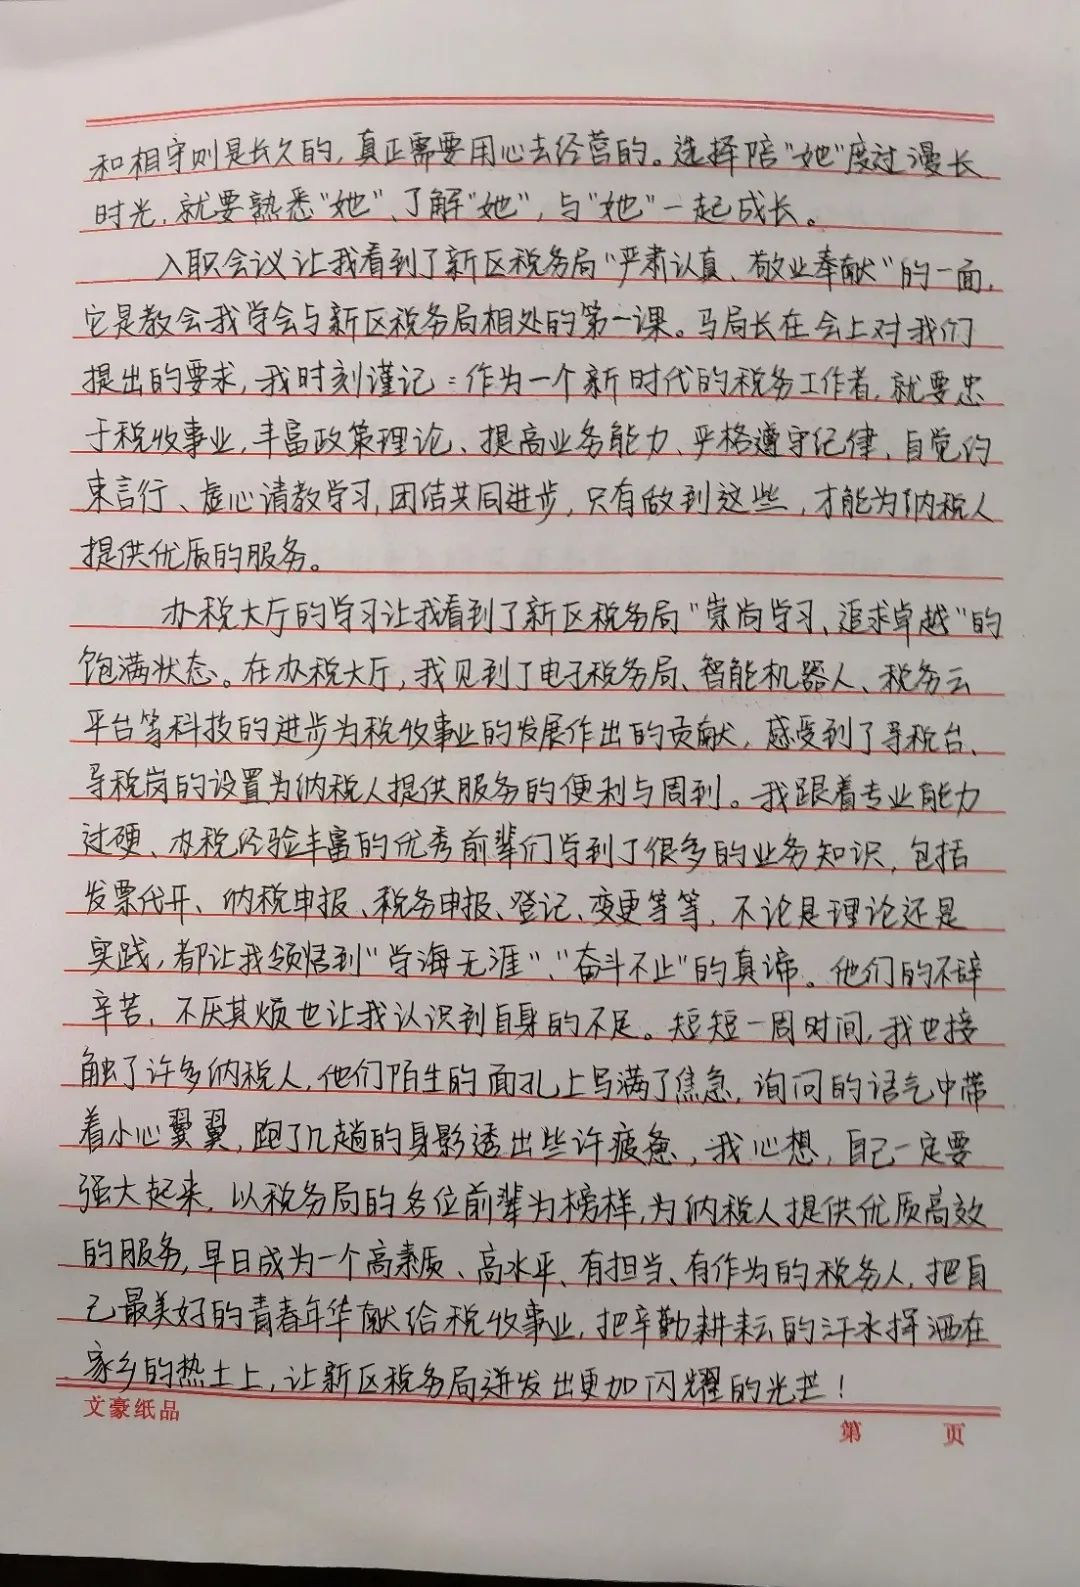 和相守则是长久的,真正需要用心去经营的。选择陪"她"度过漫长
时光,就要熟悉"她"、了解"她",与"她"一起成长。
入职会议让我看到了新区税务局"严肃认真、敬业奉献"的一面,
它是教会我学会与新区税务局相处的第一课。马局长在会上对我们
提出的要求,我时刻谨记:作为一个新时代的税务工作者,就要忠
于税收事业,丰富政策理论、提高业务能力、严格遵守纪律、自觉约
束言行、虚心请教学习,团结共同进步,只有做到这些,才能为纳税人
提供优质的服务。
办税大厅的学习让我看到了新区税务局"崇尚学习、追求卓越"的
饱满状态。在办税大厅,我见到了电子税务局、智能机器人、税务云
平台等科技的进步为税收事业的发展作出的贡献,感受到了导税台、
导税岗的设置为纳税人提供服务的便利与周到。我跟着专业能力
过硬、办税经验丰富的优秀前辈们学到了很多的业务知识,包括
发票代开、纳税申报、税务申报、登记、变更等等,不论是理论还是
实践,都让我领悟到"学海无涯"、"奋斗不止"的真谛。他们的不辞
辛苦,不厌其烦也让我认识到自身的不足。短短一周时间,我也接
触了许多纳税人,他们陌生的面孔上写满了焦急,询问的语气中带
着小心翼翼,跑了几趟的身影透出些许疲惫,我心想,自己一定要
强大起来,以税务局的各位前辈为榜样,为纳税人提供优质高效
的服务,早日成为一个高素质、高水平、有担当、有作为的税务人,把自
己最美好的青春年华献给税收事业,把辛勤耕耘的汗水挥洒在
家乡的热土上,让新区税务局迸发出更加闪耀的光芒!
文豪纸品
第 页